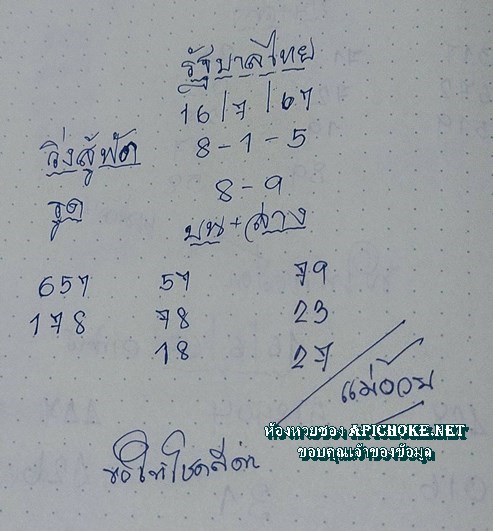 รัฐบาลไทย
16/7/67
วิ่งสู้ฟัด 8-1-5
รูด 8-9
บน+ล่าง
657 57 79
178 78 23
18 27
แม่อ้วน
ห้องหวยซอง APICHOKE.NET
ขอบคุณเจ้าของข้อมูล
ขอให้โชคดีค่า